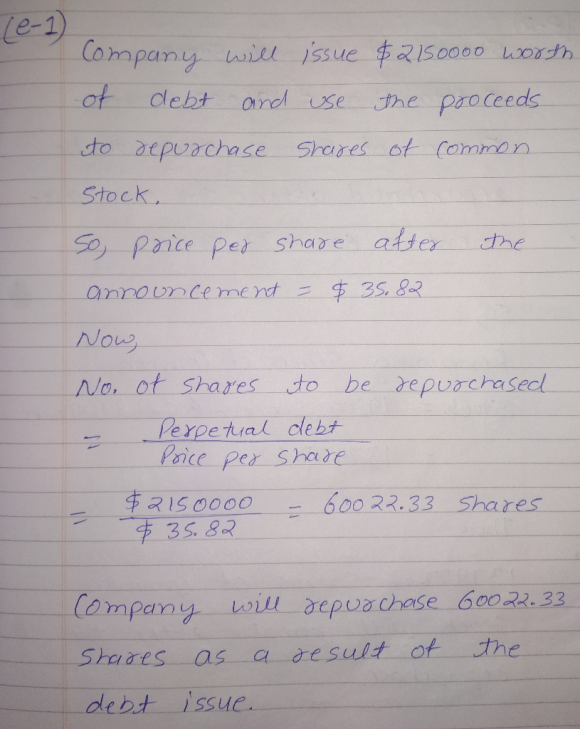 (e-1)
Company will issue $2150000 worth
of debt and use the proceeds
to repurchase shares of common
stock.
So, price per share after the
announcement = $ 35.82
Now,
No. of shares to be repurchased
= Perpetual debt
Price per share
= $2150000 = 60022.33 shares
$ 35.82
Company will repurchase 60022.33
shares as a result of the
debt issue.